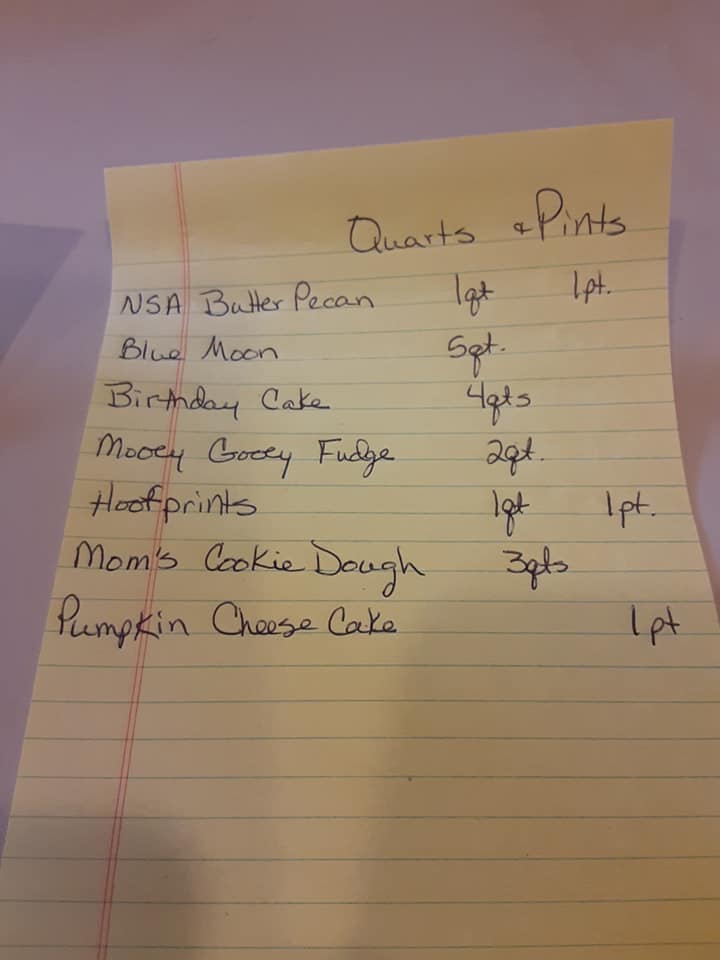 Quarts & Pints
NSA Butter Pecan 1qt 1pt.
Blue Moon 5qt.
Birthday Cake 4qts
Mooey Gooey Fudge 2qt.
Hoofprints 1qt 1pt.
Mom's Cookie Dough 3qts
Pumpkin Cheese Cake 1pt